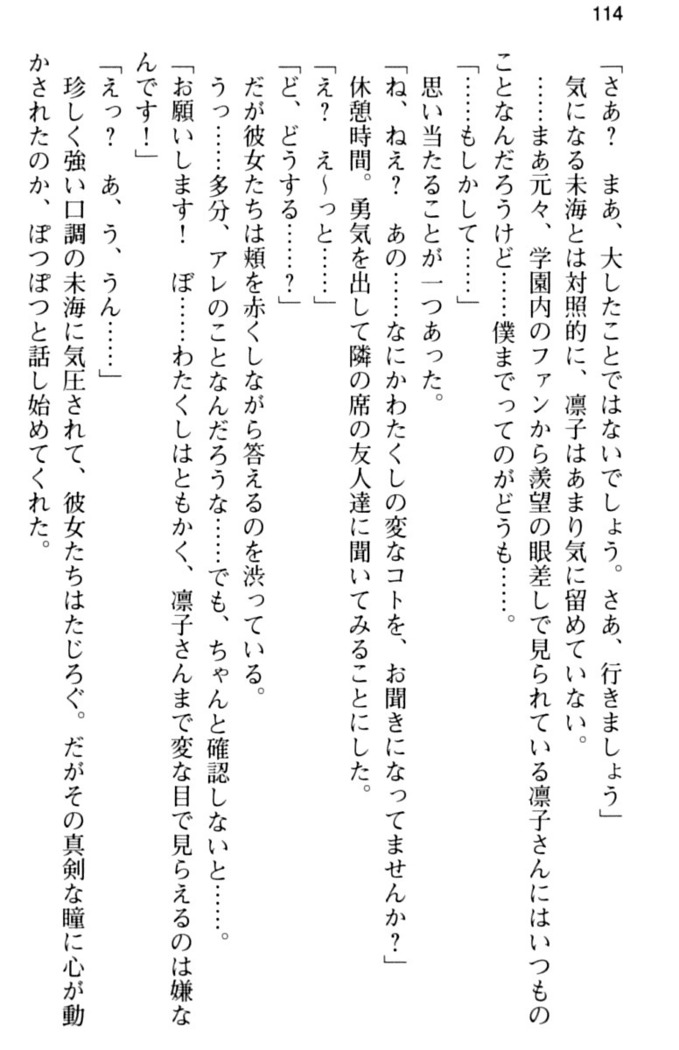 114
「さあ？　まあ、大したことではないでしょう。さあ、行きましょう」
　気になる未海とは対照的に、凛子はあまり気に留めていない。
　……まあ元々、学園内のファンから羨望の眼差しで見られている凛子さんにはいつもの
ことなんだろうけど……僕までってのがどうも……。
「……もしかして……」
　思い当たることが一つあった。
「ね、ねえ？　あの……なにかわたくしの変なコトを、お聞きになってませんか？」
　休憩時間。勇気を出して隣の席の友人達に聞いてみることにした。
「え？　え～っと……」
「ど、どうする……？」
　だが彼女たちは頬を赤くしながら答えるのを渋っている。
　うっ……多分、アレのことなんだろうな……でも、ちゃんと確認しないと……。
「お願いします！　ぼ……わたくしはともかく、凛子さんまで変な目で見らえるのは嫌な
んです！」
「えっ？　あ、う、うん……」
　珍しく強い口調の未海に気圧されて、彼女たちはたじろぐ。だがその真剣な瞳に心が動
かされたのか、ぽつぽつと話し始めてくれた。